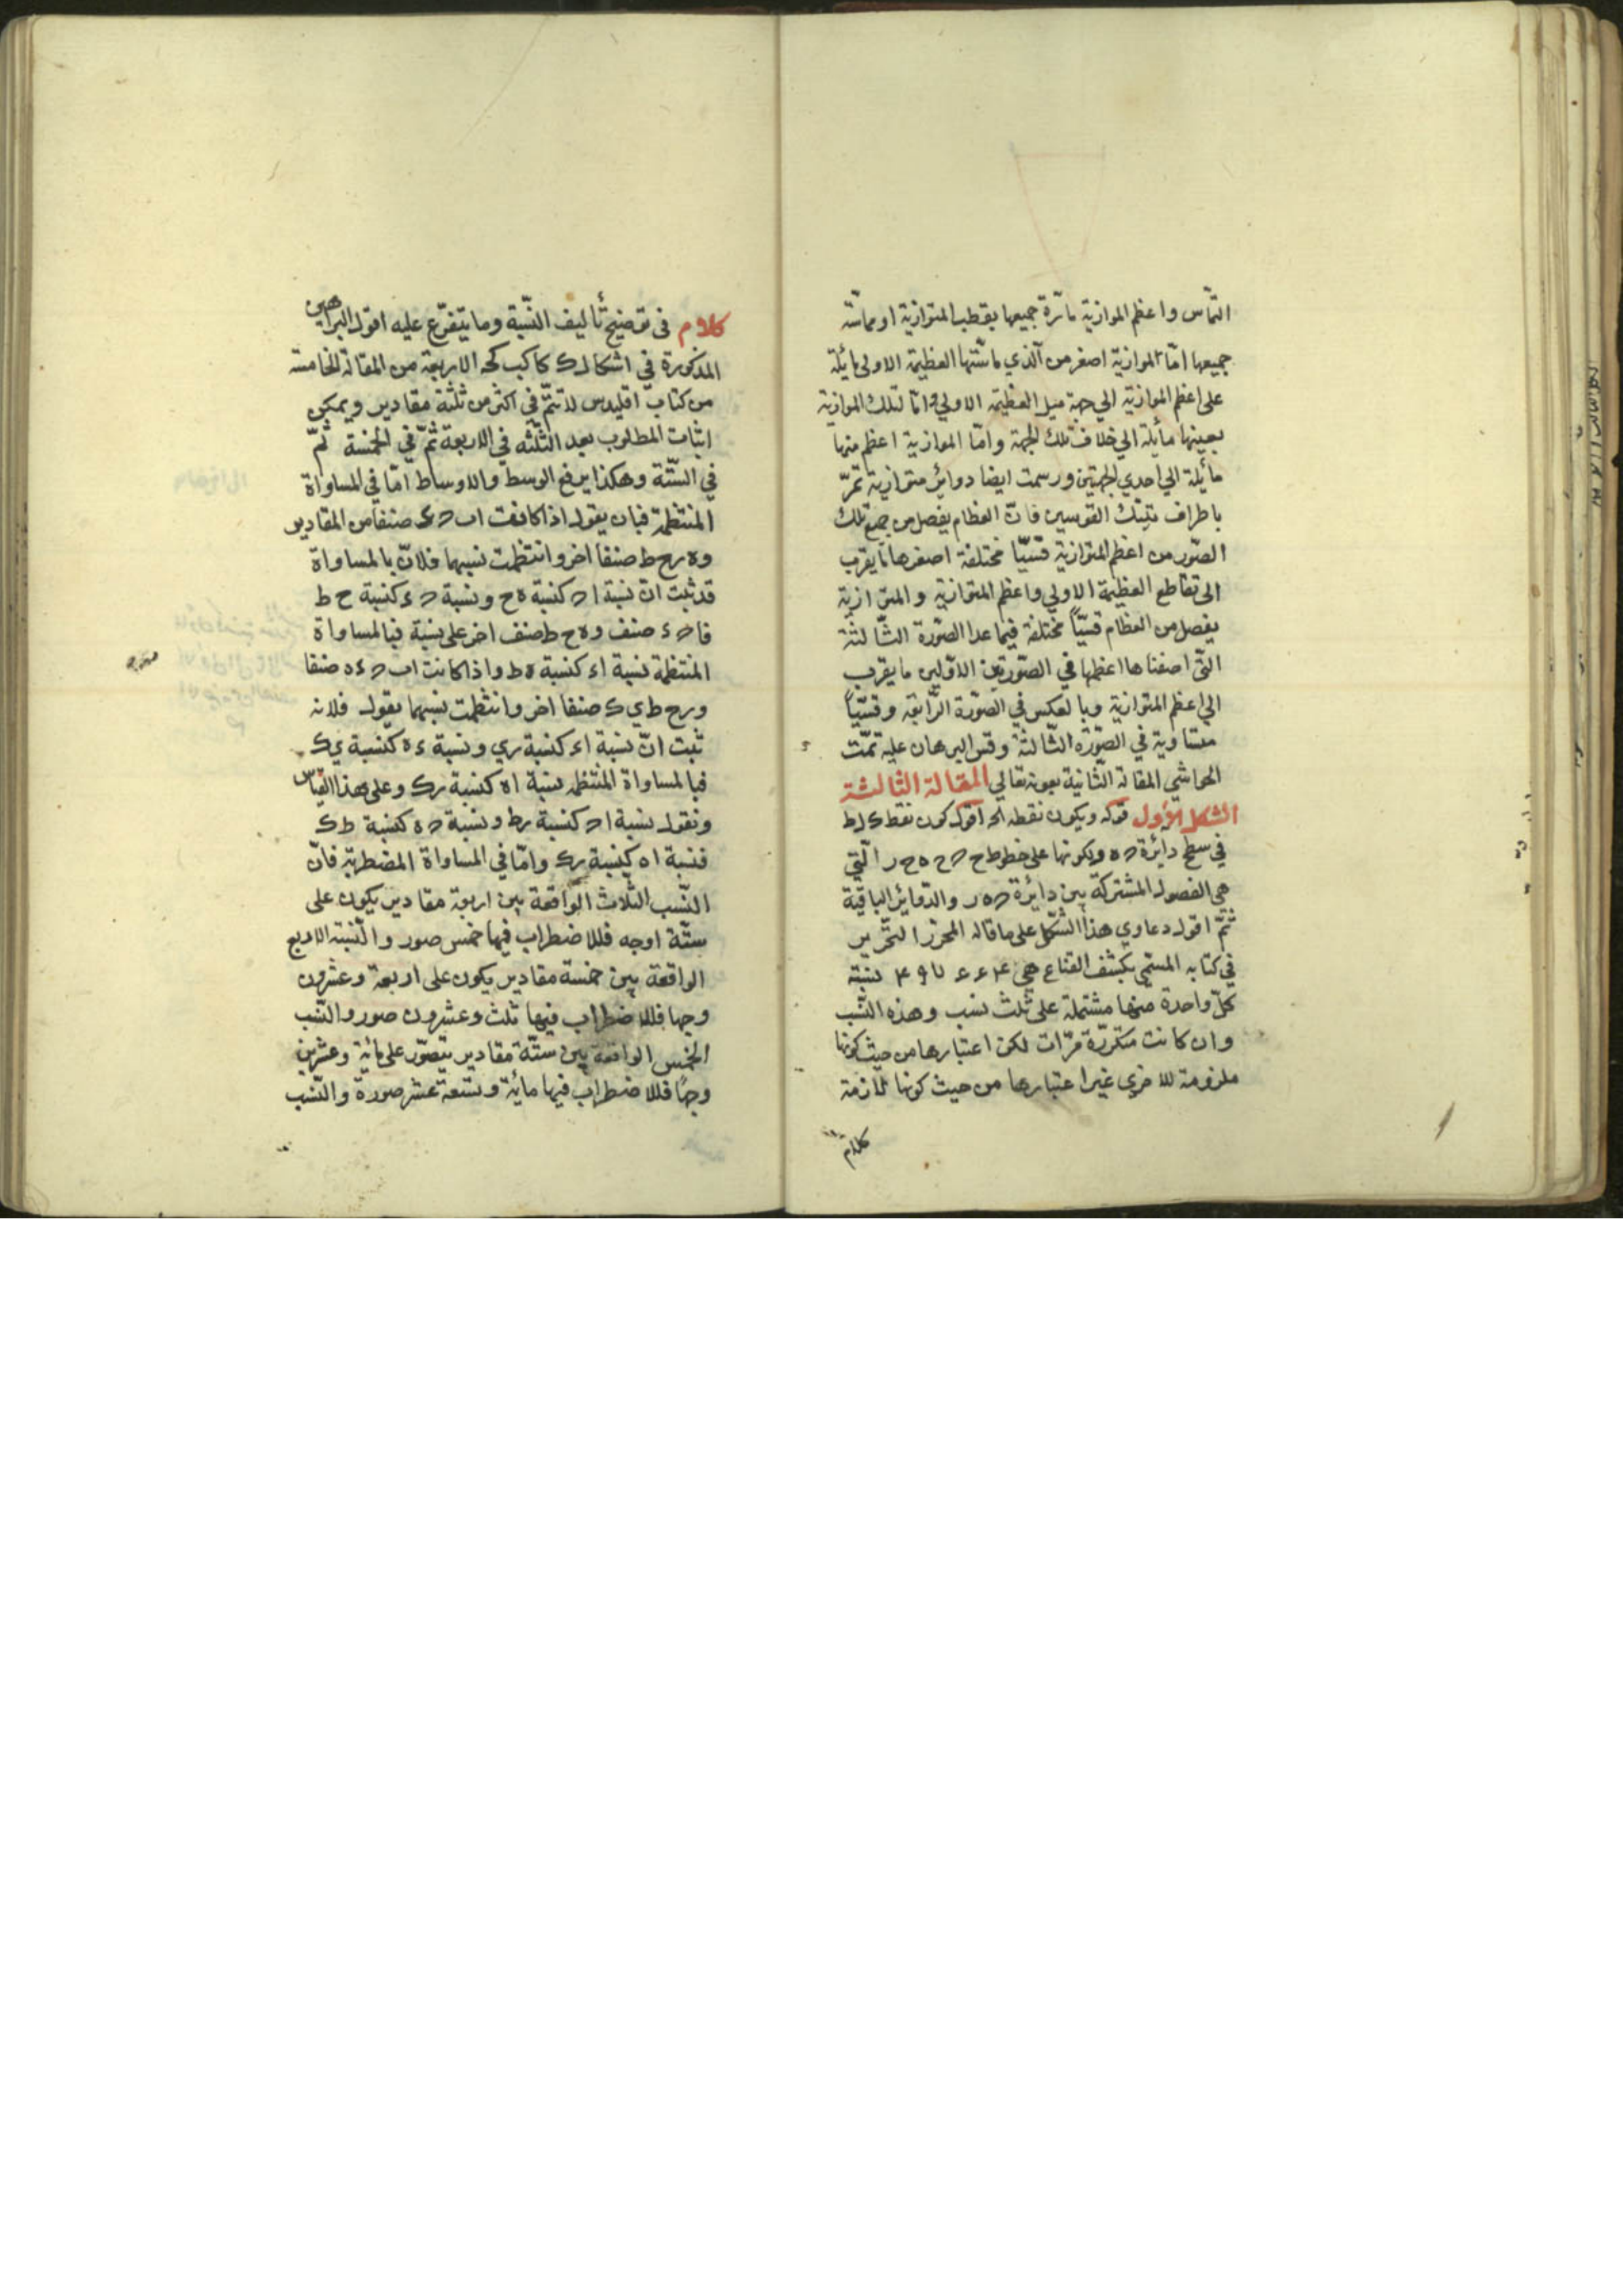 التماس واعظم الموازية مارة جميعها بقطب المتوازية او مماسته
جميعها امّا الموازية اصغر من الذي ماستها العظيمة الاولى مائلة
على اعظم الموازية الي جهة ميل العظيمة الاولي وامّا لتلك الموازية
بعينها مائلة الي خلاف تلك الجهة وامّا الموازية اعظم منها
مائلة الي احدي الجهتين ورسمت ايضا دوائر متوازية تمرّ
باطراف تينك القوسين فانّ العظام يفصل من جميع تلك
الصّور من اعظم المتوازية قسيّا مختلفة اصغرها ما يقرب
الى تقاطع العظيمة الاولي واعظم المتوازية والمتوازية
يفصل من العظام قسيّاً مختلفة فيما عدا الصّورة الثّالثة
التّى اصفناها اعظمها في الصّورتين الاوّلين ما يقرب
الي اعظم المتوازية وبالعكس في الصّورة الرّابعة وقسيّاً
متساوية في الصّورة الثّالثة وقس البرهان عليه تمّت
الحواشي المقالة الثّانية بعونه تعالي المقالة الثالثة
الشكل الأول قوله ويكون نقطه الخ اقول كون نقط ك ل ط
في سطح دائرة ح ه وكونها على خطوط ح ح ه ح ر الّتي
هي الفصول المشتركة بين دائرة ح ه ر والدّوائر الباقية
ثمّ اقول دعاوي هذا الشّكل على ما قاله المحرّر التحرير
في كتابه المسمّي بكشف القناع هي نسبة
كلّ واحدة منها مشتملة على ثلث نسب وهذه النّسب
وان كانت متكرّرة مرّات لكن اعتبارها من حيث كونها
ملزومة للاخري غير اعتبارها من حيث كونها لازمة
كلام
كلام فى توضيح تأليف النّسبة وما يتفرّع عليه اقول البراهين
المذكورة في اشكال ك كا كب كج الاربعة من المقالة الخامسة
من كتاب اقليدس لا تتمّ في اكثر من ثلثة مقادير ويمكن
اثبات المطلوب بعد الثّلثه في الاربعة ثمّ في الخمسة ثمّ
في السّتّة وهكذا يرفع الوسط والاوساط امّا في المساواة
المنتظمة فبان يقول اذا كانت اب ح ء صنفاً من المقادير
وه رح ط صنفا اخر وانتظمت نسبهما فلانّ بالمساواة
قد ثبت انّ نسبة ا ح كنسبة ه ح ونسبة ح ء كنسبة ح ط
فا ح ء صنف وه ح ط صنف اخر على نسبة فبالمساواة
المنتظمة نسبة اء كنسبة ه ط واذا كانت اب ح ء ه صنفا
ورح ط ي ك صنفا اخر وانتظمت نسبهما يقول فلانه
ثبت انّ نسبة اء كنسبة ري ونسبة ء ه كنسبة ي ك
فبالمساواة المنتظمة نسبة اه كنسبة رك وعلى هذا القياس
ونقول نسبة ا ح كنسبة رط ونسبة ح ه كنسبة ط ك
فنسبة اه كنسبة رك وامّا في المساواة المضطربة فانّ
النّسب الثلاث الواقعة بين اربعة مقادير يكون على
ستّة اوجه فللاضطراب فيها خمس صور والنّسبة الاربع
الواقعة بين خمسة مقادير يكون على اربعة وعشرون
وجها فللاضطراب فيها ثلث وعشرون صور والنّسب
الخمس الواقعة بين ستّة مقادير يتصوّر على مائة وعشرين
وجهاً فللاضطراب فيها مائة وتسعة عشر صورة والنّسب